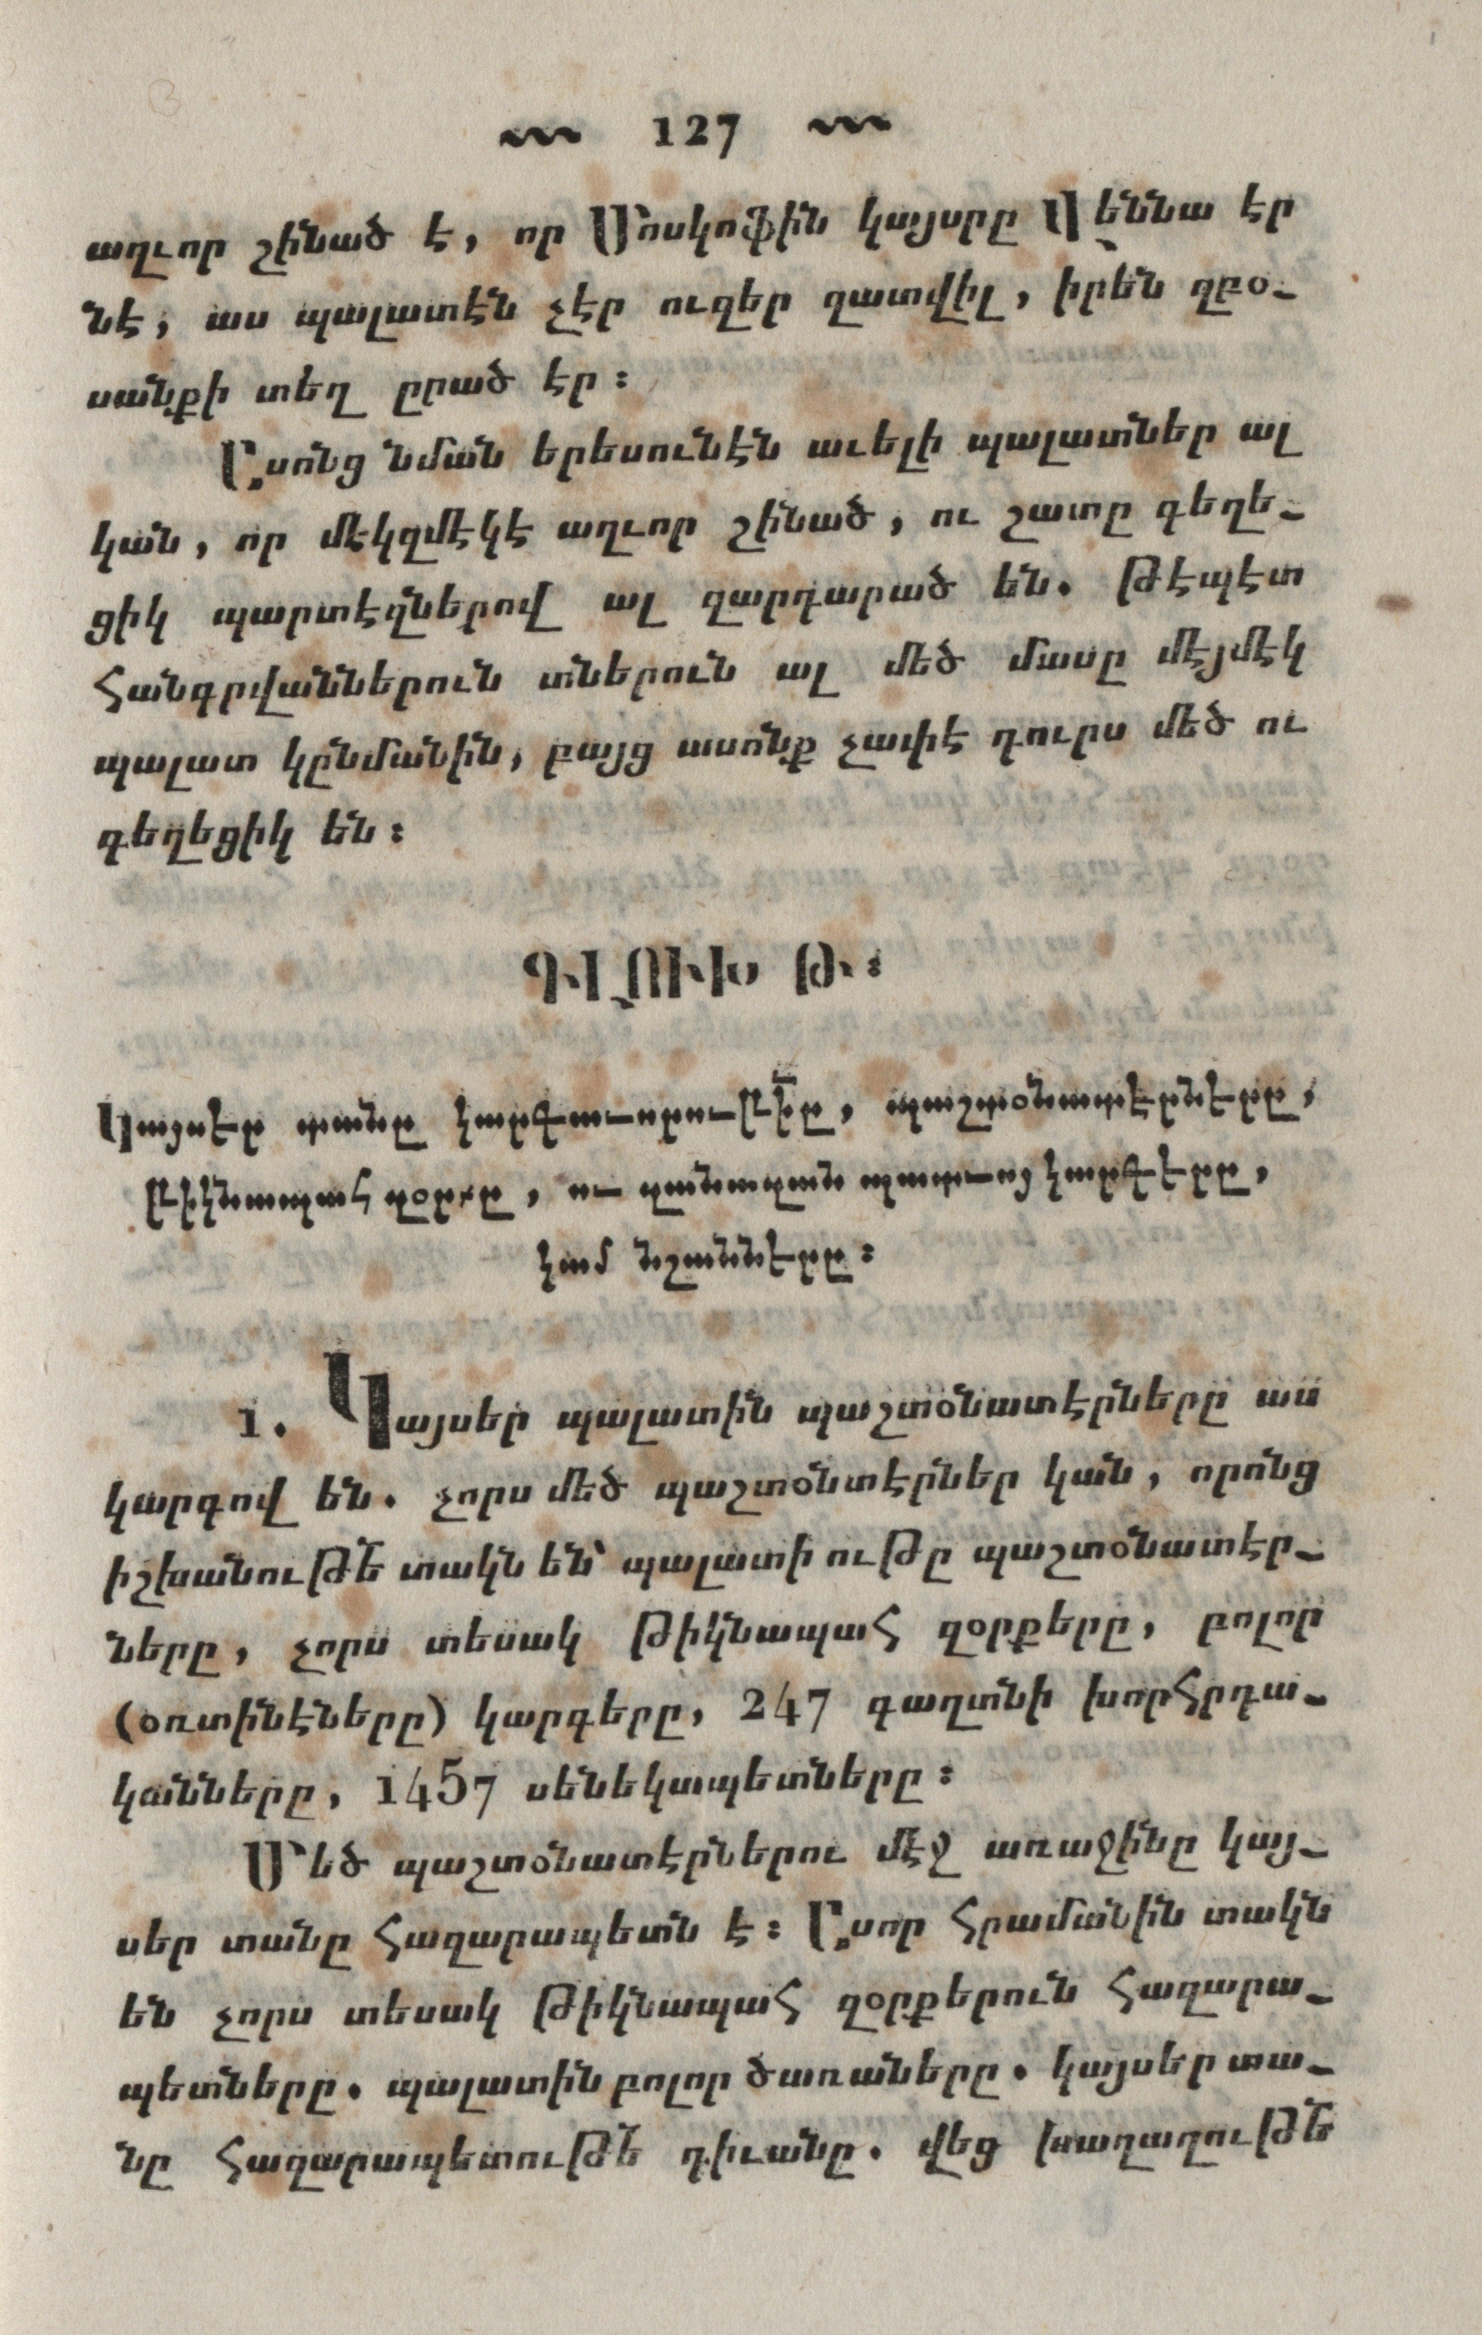 127
աղւոր շինած է, որ Մոսկոֆին կայսրը Վէննա էր
նէ, աս պալատէն չէր ուզեր զատվիլ, իրեն զբօ-
սանքի տեղ ըրած էր։
Ըսոնց նման երեսունէն աւելի պալատներ ալ
կան, որ մէկզմէկէ աղւոր շինած, ու շատը գեղե-
ցիկ պարտէզներով ալ զարդարած են. թէպէտ
հանգրվաններուն տներուն ալ մեծ մասը մէյմէկ
պալատ կընմանին, բայց ասոնք չափէ դուրս մեծ ու
գեղեցիկ են։
ԳԼՈՒԽ Թ։
Կայսեր տանը կարգաւորութիը, պաշտօնատէրները,
թիկնապահ զօրքը, ու զանազան պատւոյ կարգերը,
կամ նշանները։
1. Կայսեր պալատին պաշտօնատէրները աս
կարգով են. չորս մեծ պաշտօնտէրներ կան, որոնց
իշխանութե տակն են՝ պալատի ութը պաշտօնատէր-
ները, չորս տեսակ թիկնապահ զօրքերը, բոլոր
(օռտինէները) կարգերը, 247 գաղտնի խորհրդա-
կանները, 1457 սենեկապետները։
Մեծ պաշտօնատէրներու մէջ առաջինը կայ-
սեր տանը հազարապետն է։ Ըսոր հրամանին տակն
են չորս տեսակ թիկնապահ զօրքերուն հազարա-
պետները. պալատին բոլոր ծառաները. կայսեր տա-
նը հազարապետութե դիւանը. վեց խաղաղութե